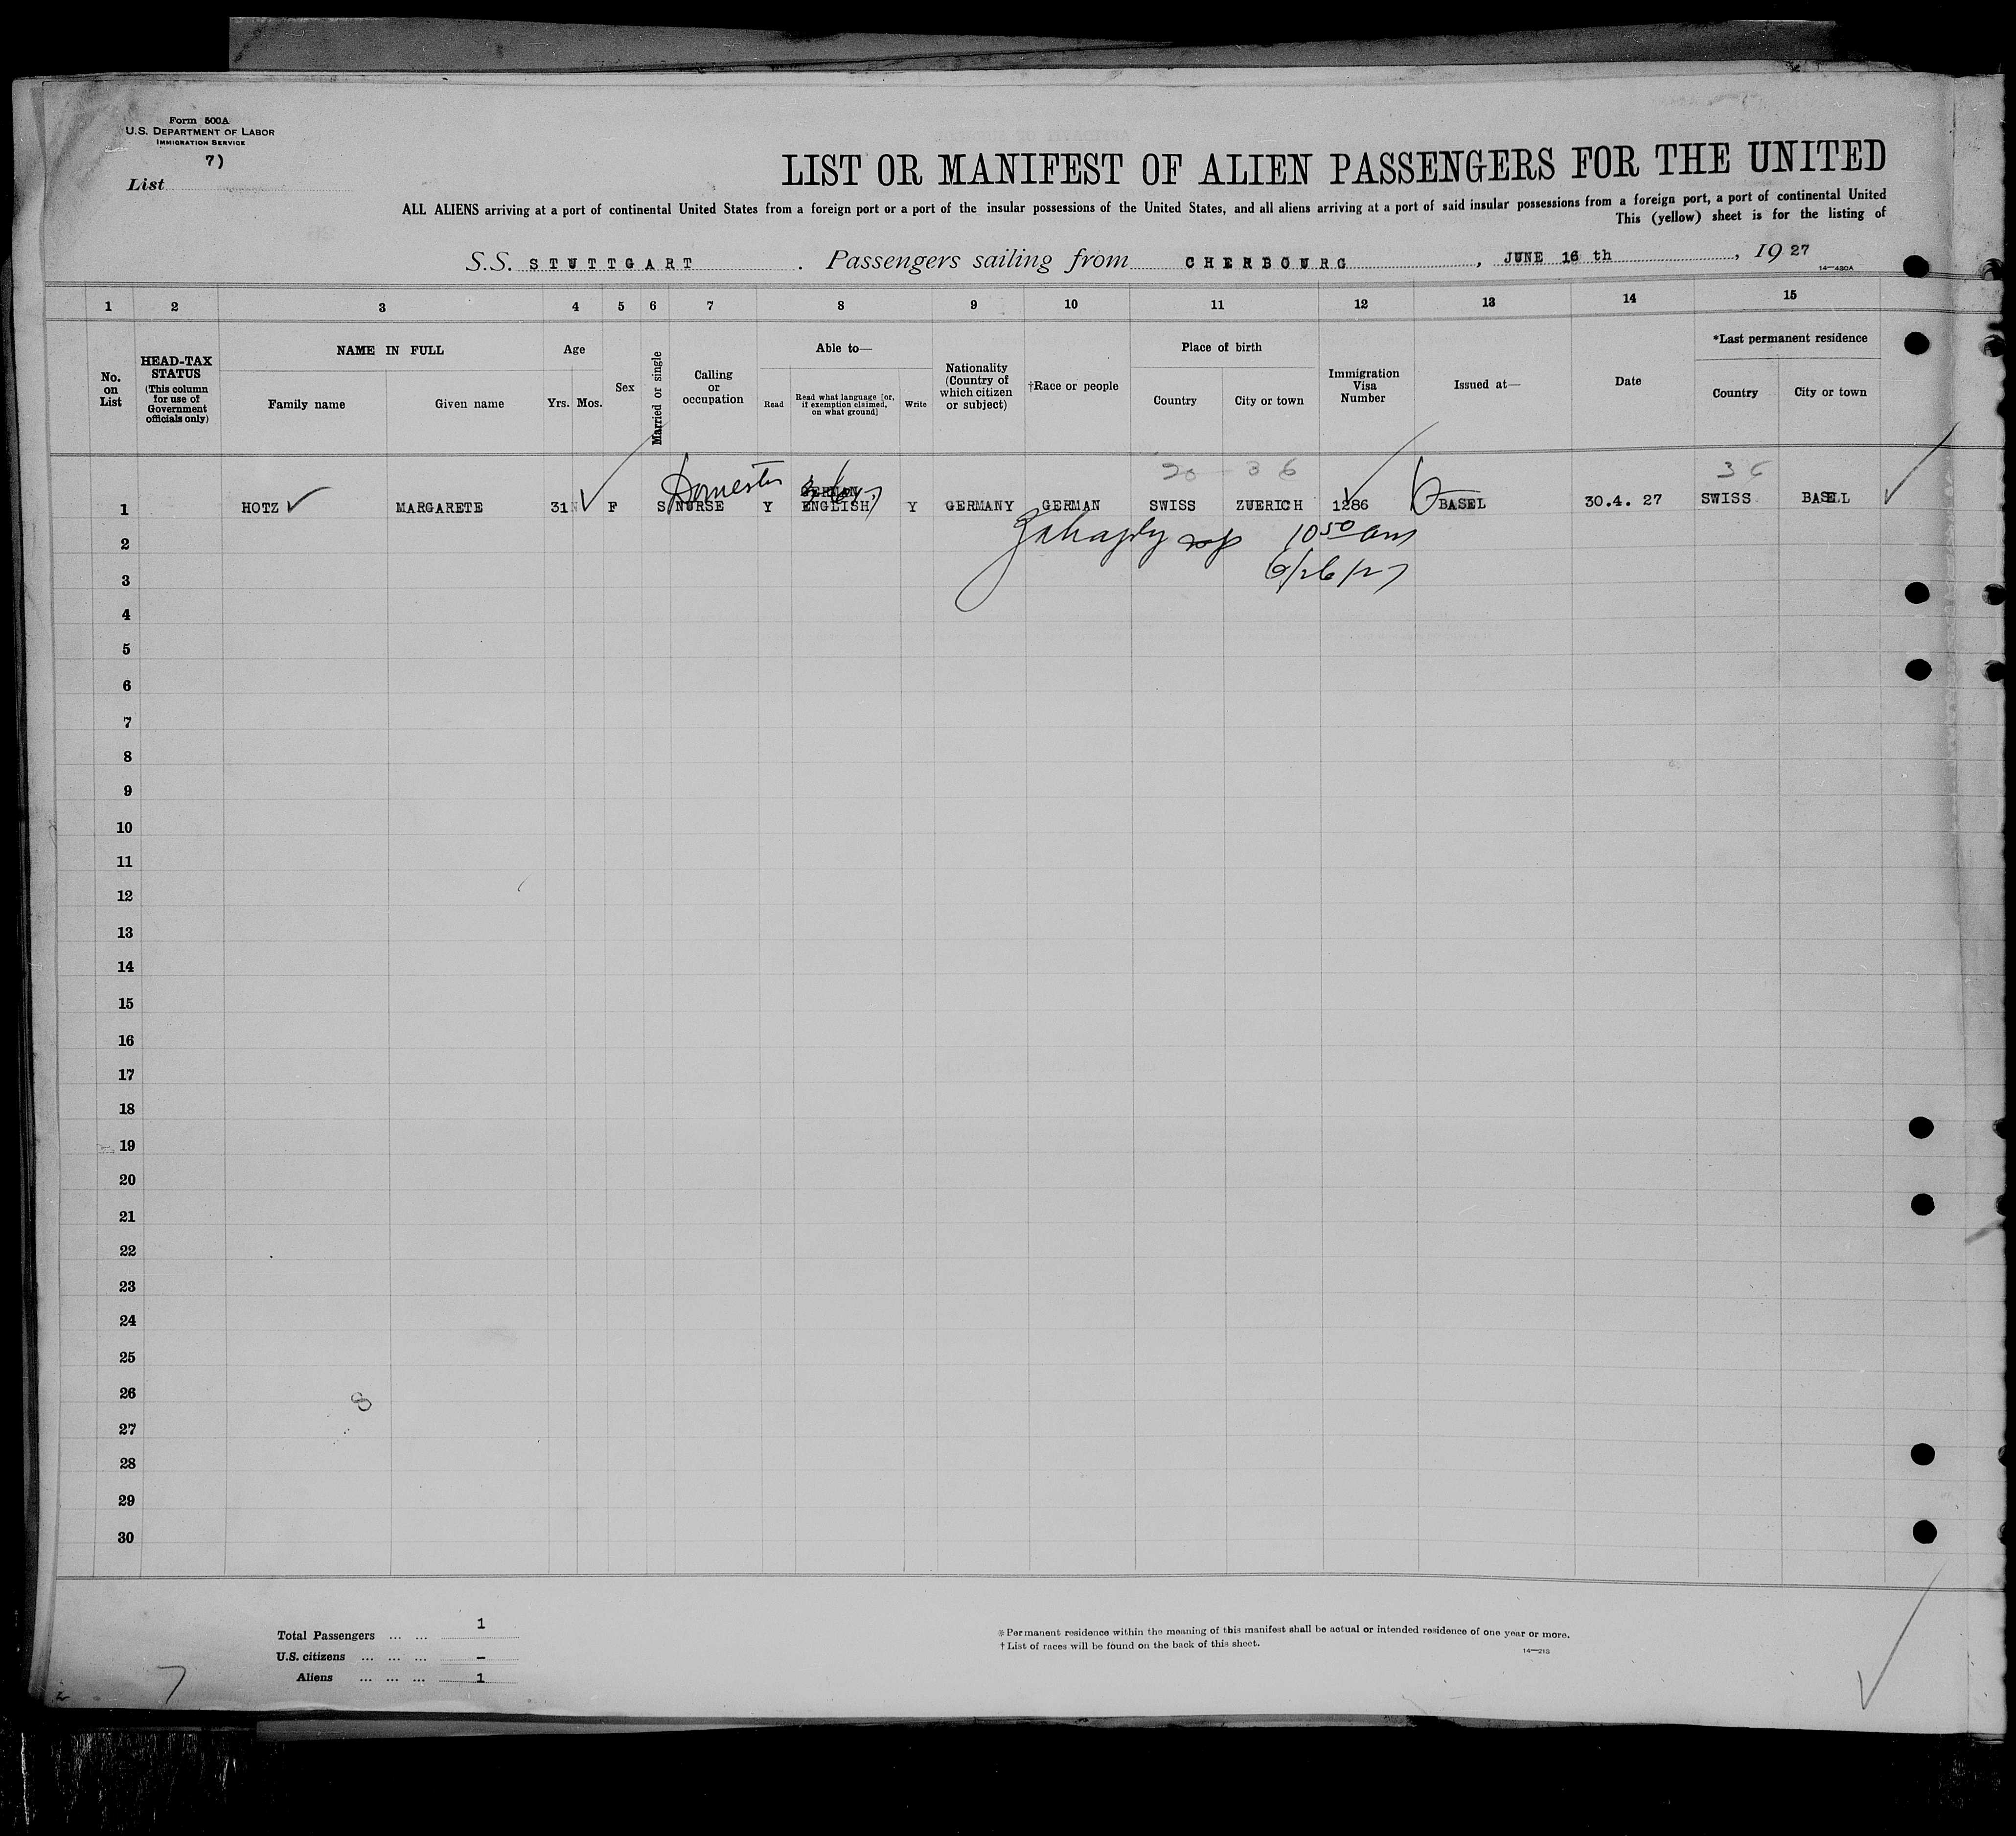 Form 500A
U.S. DEPARTMENT OF LABOR
IMMIGRATION SERVICE
7)
List
LIST OR MANIFEST OF ALIEN PASSENGERS FOR THE UNITED
ALL ALIENS arriving at a port of continental United States from a foreign port or a port of the insular possessions of the United States, and all aliens arriving at a port of said insular possessions from a foreign port, a port of continental United
This (yellow) sheet is for the listing of
S.S. STUTTGART. Passengers sailing from CHERBOURG, JUNE 16 th, 19 27
14—430A
1 2 3 4 5 6 7 8 9 10 11 12 13 14 15
No. on List
HEAD-TAX STATUS (This column for use of Government officials only)
NAME IN FULL
Family name Given name
Age
Yrs. Mos.
Sex
Married or single
Calling or occupation
Able to—
Read Read what language [or, if exemption claimed, on what ground] Write
Nationality (Country of which citizen or subject)
†Race or people
Place of birth
Country City or town
Immigration Visa Number
Issued at—
Date
*Last permanent residence
Country City or town
20 - 36 36
Domestic GERMAN
1 HOTZ MARGARETE 31 F S NURSE Y ENGLISH Y GERMANY GERMAN SWISS ZUERICH 1286 BASEL 30.4. 27 SWISS BASEL
2 10 50 am
3 6/26/27
4
5
6
7
8
9
10
11
12
13
14
15
16
17
18
19
20
21
22
23
24
25
26
8
27
28
29
30
Total Passengers ... ... 1
U.S. citizens ... ... ... –
Aliens ... ... ... 1
7
*Permanent residence within the meaning of this manifest shall be actual or intended residence of one year or more.
†List of races will be found on the back of this sheet.
14—213